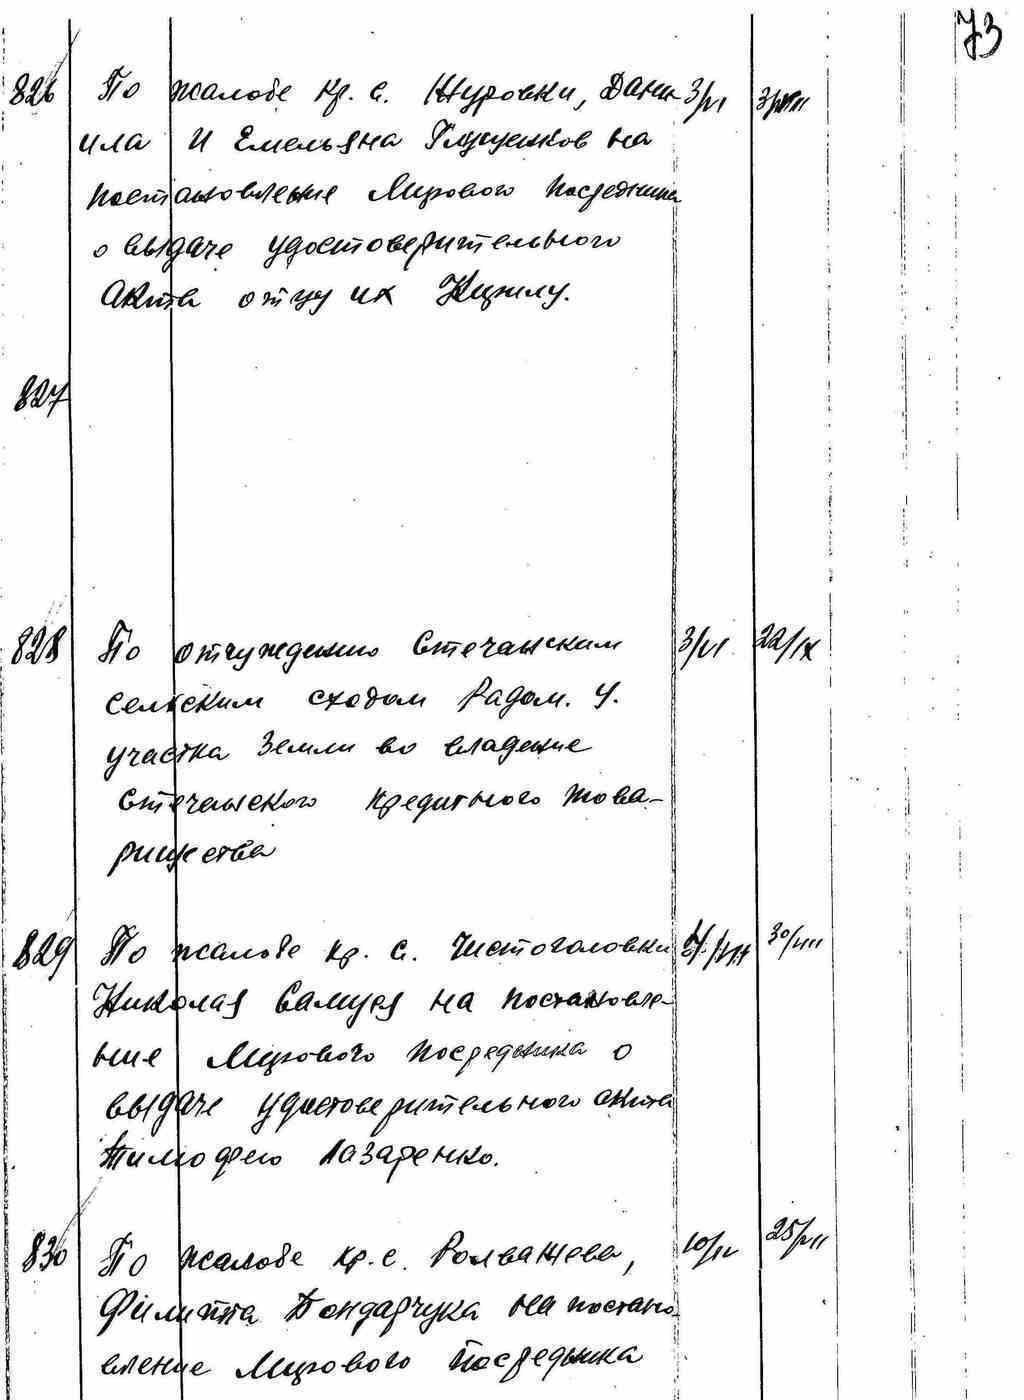 73
826 По жалобе кр. с. Шуровки, Дани- 3/VI
ила и Емельяна Глущенков на
постановление Мирового посредника
о выдаче удостоверительного
акта отцу их Кириллу.
827
828 По отчуждению Стечанским 3/VI 22/IX
сельским сходом Радом. у.
участка земли во владение
Стечанского кредитного това-
рищества
829 По жалобе кр. с. Чистоголовки 30/VIII
Николая Самуся на постановле-
ние Мирового посредника о
выдаче удостоверительного акта
Тимофею Лазаренко.
830 По жалобе кр. с. 25/VII
Филиппа Бондарчука на постано-
вление Мирового посредника